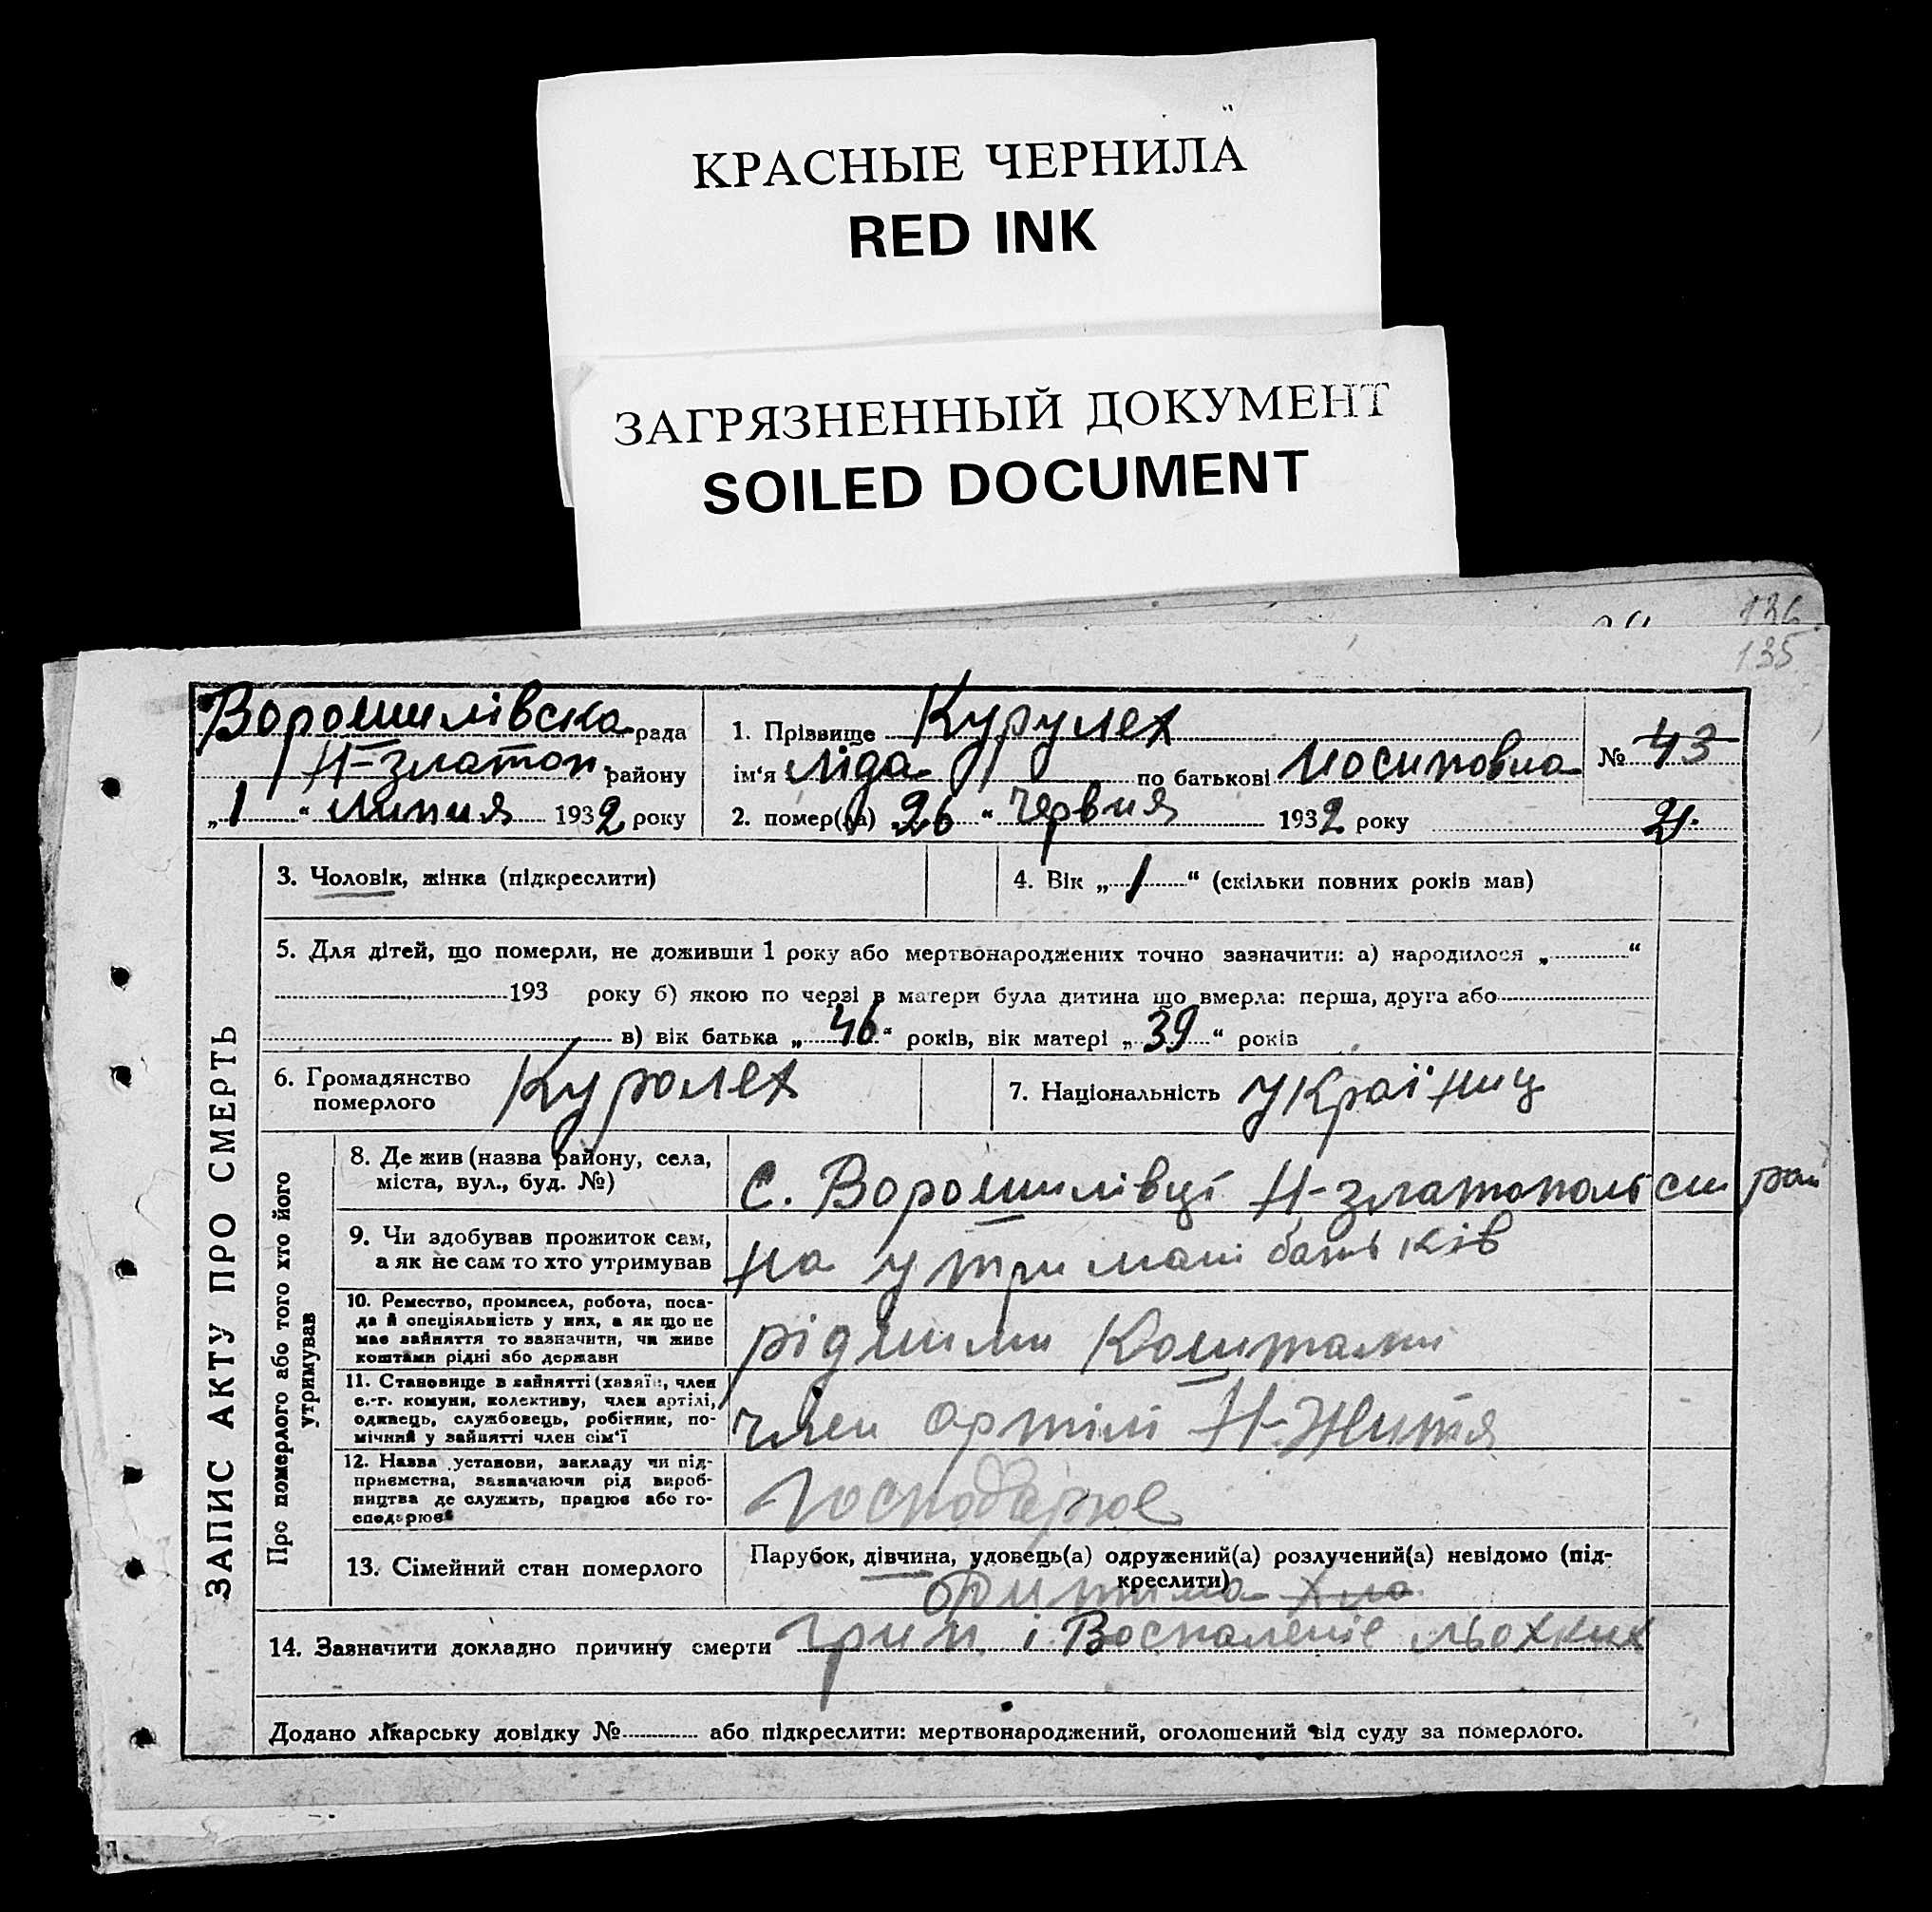 КРАСНЫЕ ЧЕРНИЛА
RED INK
ЗАГРЯЗНЕННЫЙ ДОКУМЕНТ
SOILED DOCUMENT
136
135
Ворошилівска рада
Н-златоп. району
„1“ липня 1932 року
1. Прізвище Курулех
ім‘я Ліда по батькові Иосиповна
2. помер(ла) 26 “ Червня 1932 року
№ 43
21.
ЗАПИС АКТУ ПРО СМЕРТЬ
3. Чоловік, жінка (підкреслити)
4. Вік „1“ (скільки повних років мав)
5. Для дітей, що померли, не доживши 1 року або мертвонароджених точно зазначити: а) народилося „ “
193 року б) якою по черзі в матери була дитина що вмерла: перша, друга або
в) вік батька „46“ років, вік матері „39“ років
6. Громадянство
померлого
Куролех
7. Національність Україниц
Про померлого або того хто його
утримував
8. Де жив (назва району, села,
міста, вул., буд. №)
с. Ворошилівці Н-златопольски рай
9. Чи здобував прожиток сам,
а як не сам то хто утримував
на утримані батьків
10. Ремество, промисел, робота, поса-
да й спеціяльність у них, а як що не
має зайняття то зазначити, чи живе
коштами рідні або держави
рідними Коштами
11. Становище в зайнятті (хазяїн, член
с.-г. комуни, колективу, член артілі,
одинець, службовець, робітник, по-
мічний у зайнятті член сім‘ї
член артілі Н-Життя
12. Назва установи, закладу чи під-
приємства, зазначаючи рід вироб-
ництва де служить, працює або го-
сподарює
Господарює
13. Сімейний стан померлого
Парубок, дівчина, удовець(а) одружений(а) розлучений(а) невідомо (під-
креслити)
14. Зазначити докладно причину смерти Грип і Воспаленіе льохких
Додано лікарську довідку № або підкреслити: мертвонароджений, оголошений від суду за померлого.